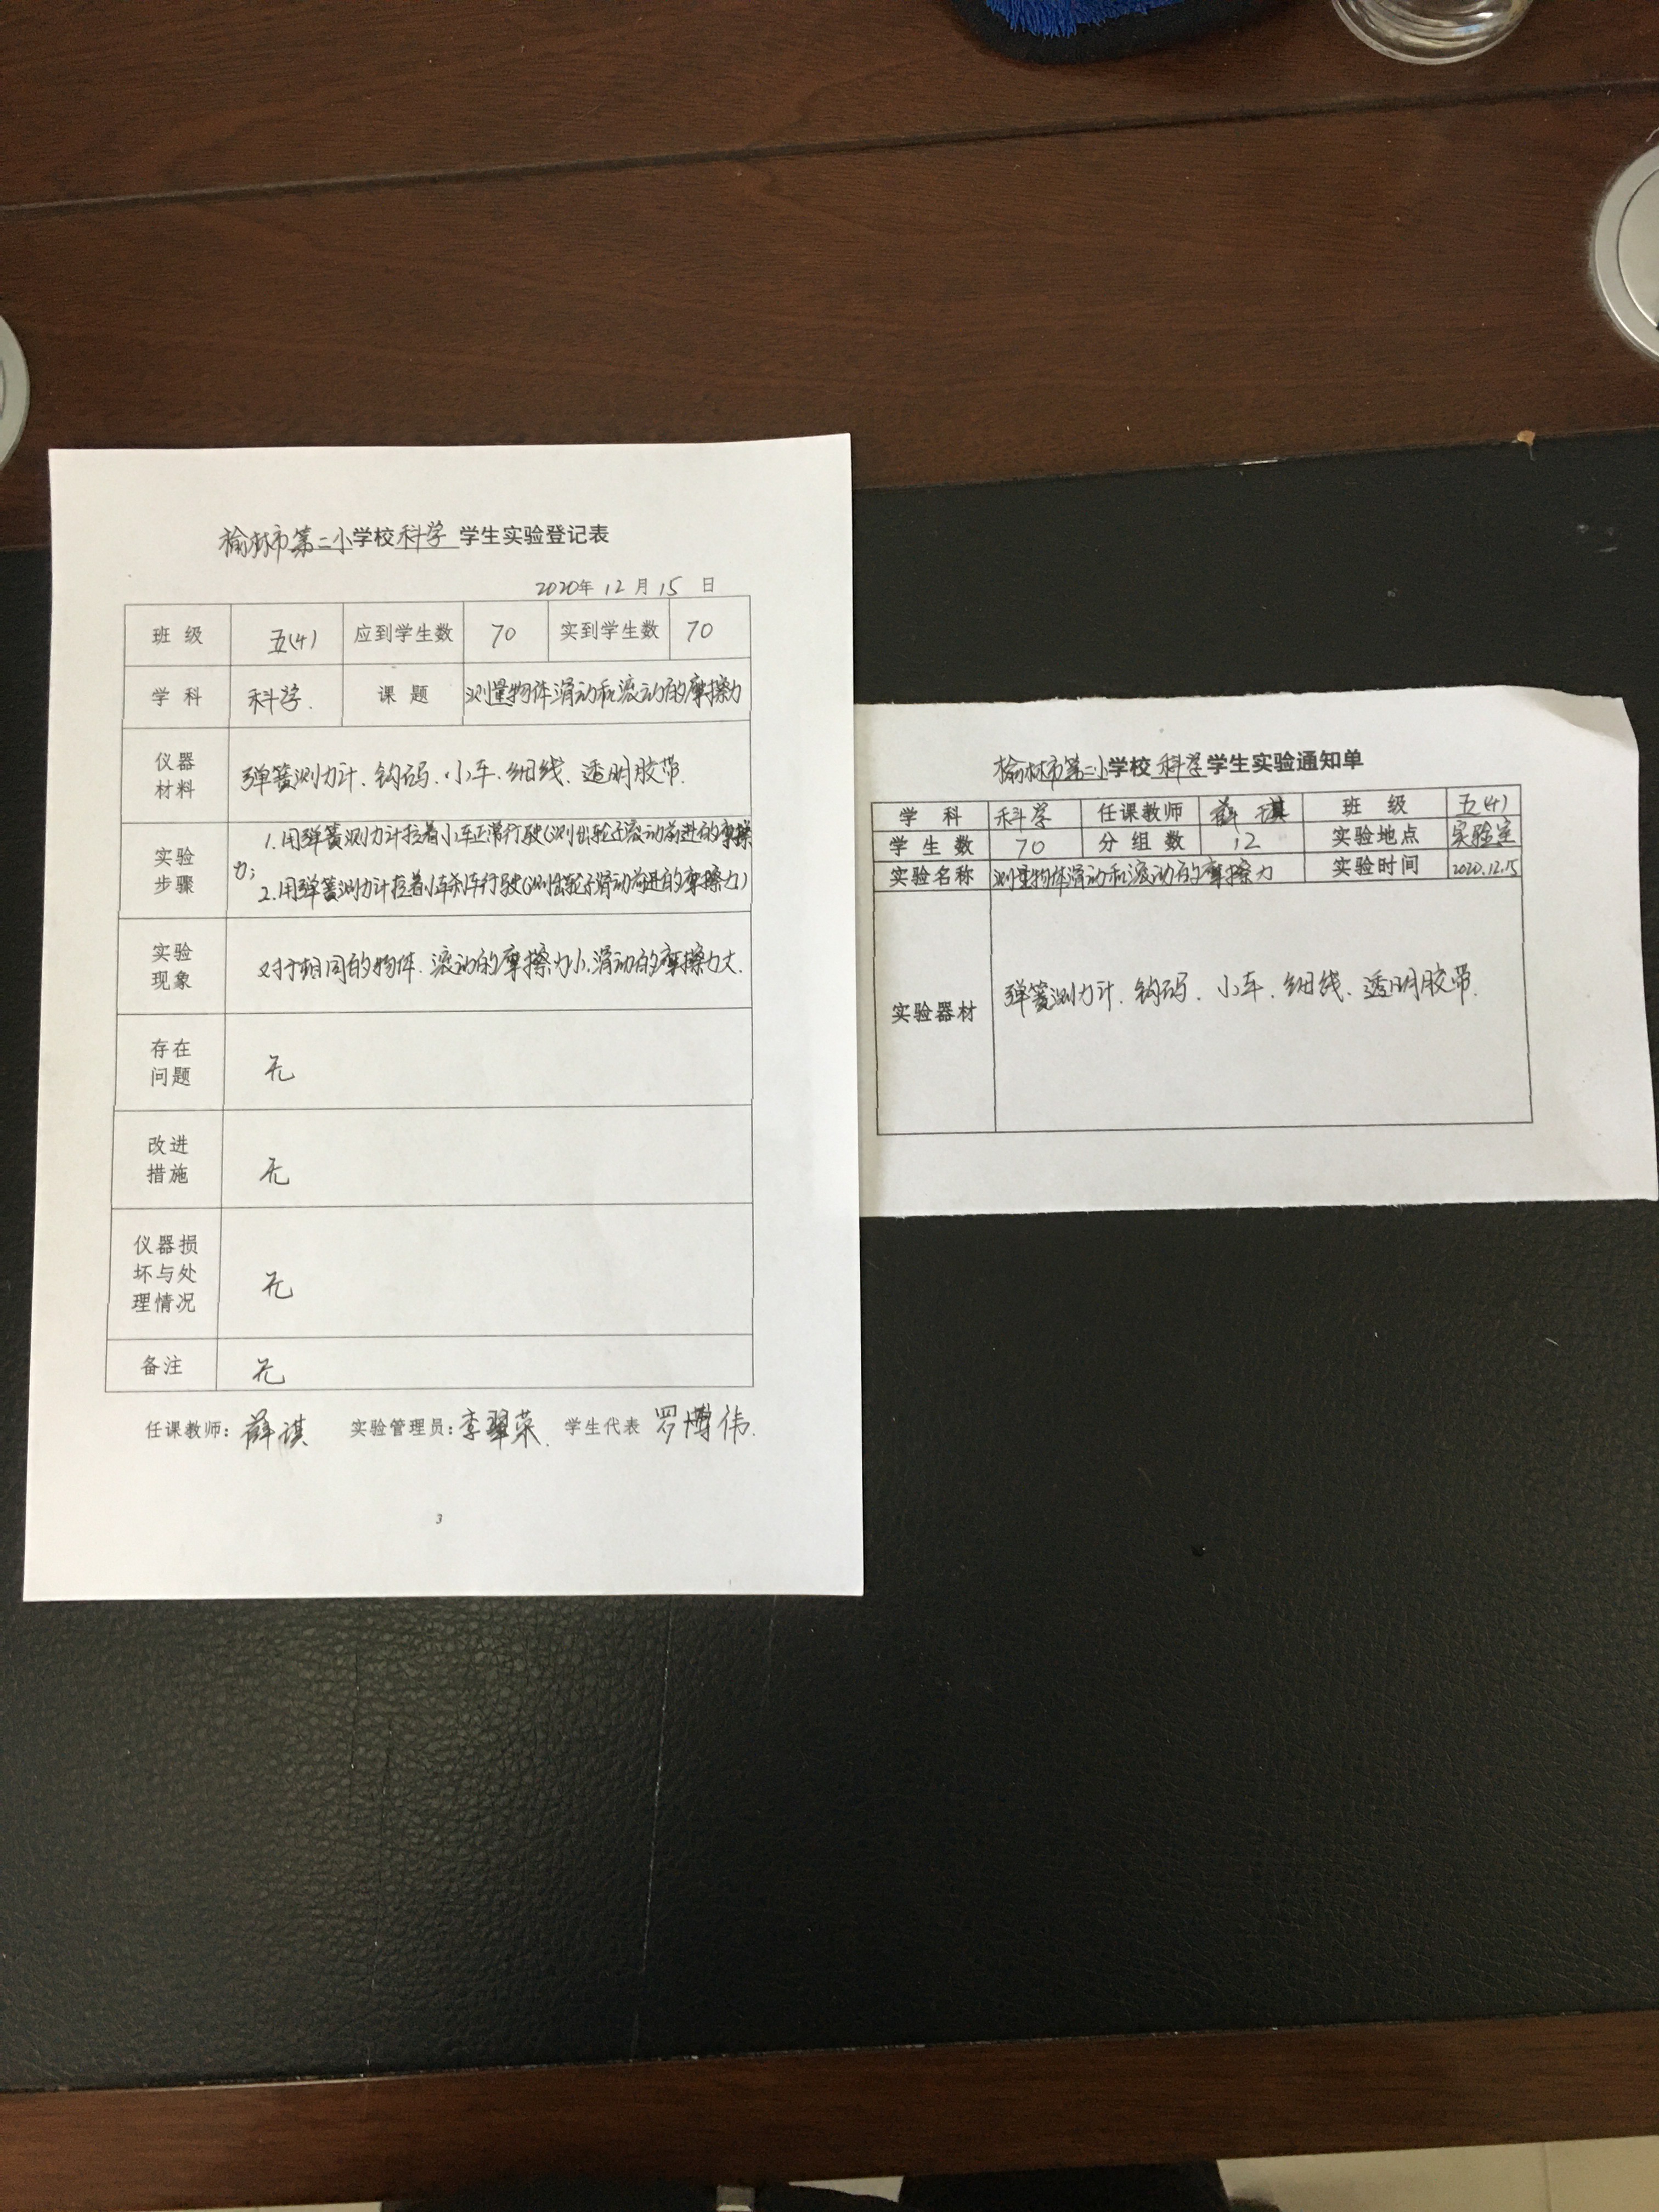 榆林市第二小学校科学 学生实验登记表
2020年 12 月 15 日
班 级 五(4) 应到学生数 70 实到学生数 70
学 科 科学. 课 题 测量物体滑动和滚动的摩擦力
仪器
材料
弹簧测力计、钩码、小车、细线、透明胶带.
实验
步骤
1.用弹簧测力计拉着小车正常行驶(测出轮子滚动前进的摩擦
力;
2.用弹簧测力计拉着小车刹车行驶(测出轮子滑动前进的摩擦力)
实验
现象
对于相同的物体.滚动的摩擦力小.滑动的摩擦力大.
存在
问题
无
改进
措施
无
仪器损
坏与处
理情况
无
备注 无
任课教师: 薛琪 实验管理员: 李翠荣. 学生代表 罗博伟.
3
榆林市第二小学校 科学 学生实验通知单
学 科 科学 任课教师 薛琪 班 级 五(4)
学 生 数 70 分 组 数 12 实验地点 实验室
实验名称 测量物体滑动和滚动的摩擦力 实验时间 2020.12.15
实验器材 弹簧测力计、钩码、小车、细线、透明胶带.